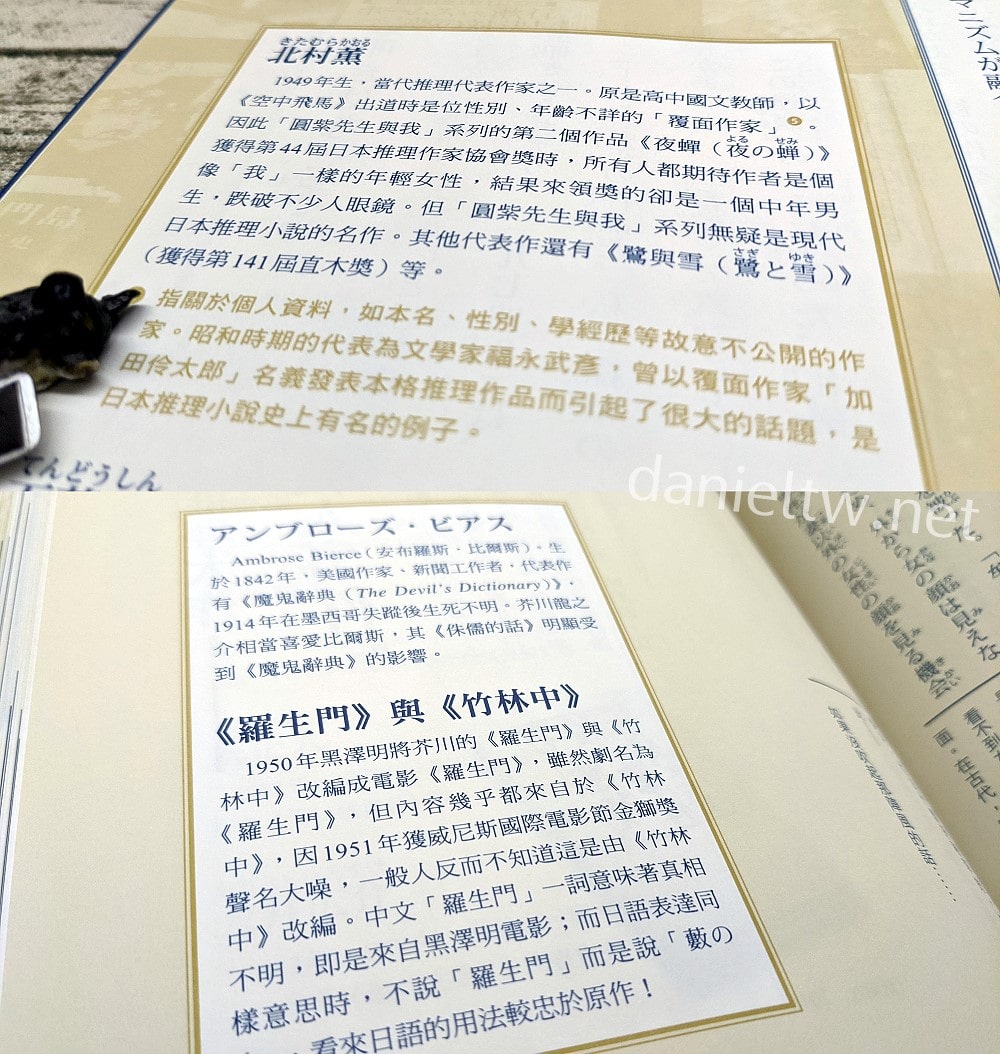 マニズムが融
きたむらかおる
北村薫
1949年生，當代推理代表作家之一。原是高中國文教師，以
《空中飛馬》出道時是位性別、年齡不詳的「覆面作家」5。
因此「圓紫先生與我」系列的第二個作品《夜蟬（夜の蝉）》
よる せみ
獲得第44屆日本推理作家協會獎時，所有人都期待作者是個
像「我」一樣的年輕女性，結果來領獎的卻是一個中年男
生，跌破不少人眼鏡。但「圓紫先生與我」系列無疑是現代
日本推理小說的名作。其他代表作還有《鷺與雪（鷺と雪）》
さぎ ゆき
（獲得第141屆直木獎）等。
指關於個人資料，如本名、性別、學經歷等故意不公開的作
家。昭和時期的代表為文學家福永武彥，曾以覆面作家「加
田伶太郎」名義發表本格推理作品而引起了很大的話題，是
日本推理小說史上有名的例子。
てんどうしん
danieltw.net
アンブローズ・ビアス
Ambrose Bierce（安布羅斯・比爾斯）。生
於1842年，美國作家、新聞工作者，代表作
有《魔鬼辭典（The Devil's Dictionary）》，
1914年在墨西哥失蹤後生死不明。芥川龍之
介相當喜愛比爾斯，其《侏儒的話》明顯受
到《魔鬼辭典》的影響。
《羅生門》與《竹林中》
1950年黑澤明將芥川的《羅生門》與《竹
林中》改編成電影《羅生門》，雖然劇名為
《羅生門》，但內容幾乎都來自於《竹林
中》，因1951年獲威尼斯國際電影節金獅獎
聲名大噪，一般人反而不知道這是由《竹林
中》改編。中文「羅生門」一詞意味著真相
不明，即是來自黑澤明電影；而日語表達同
樣意思時，不說「羅生門」而是說「藪の
看來日語的用法較忠於原作！
から女の顔は見えな
の女性の顔を見る機会
看不到
面。在古代